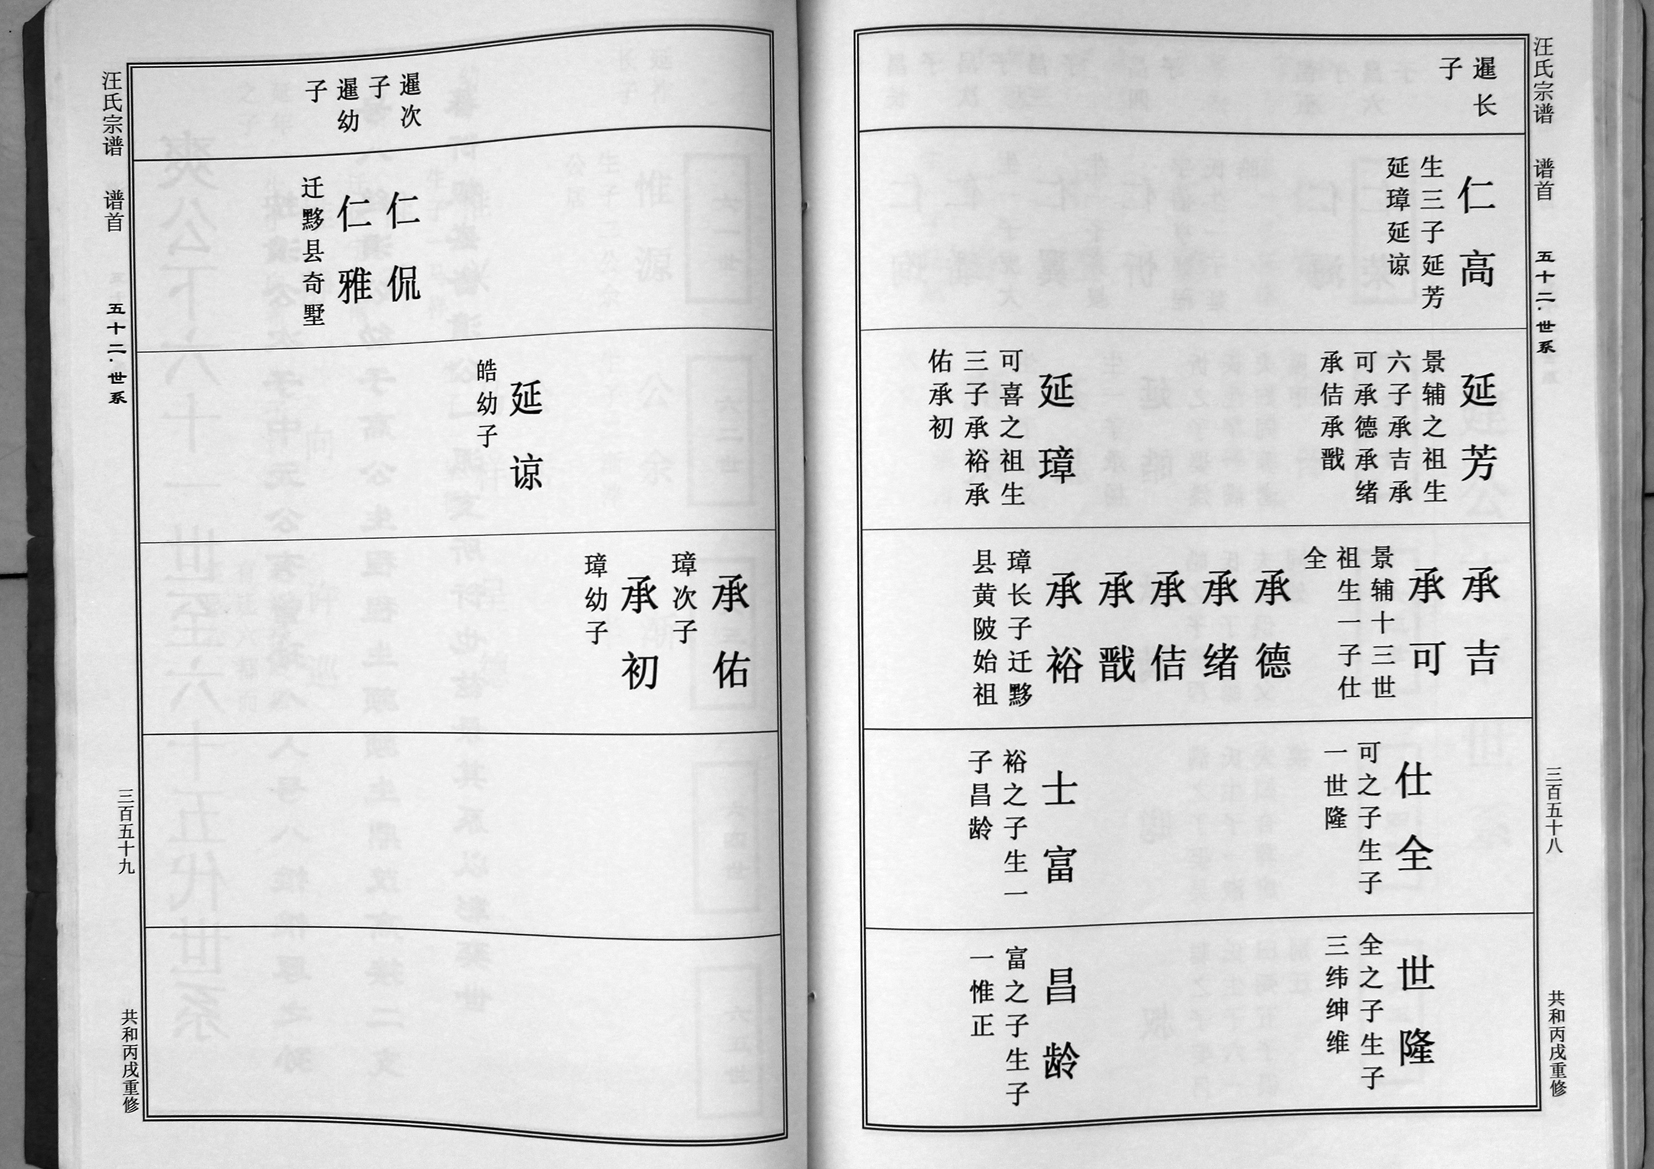 汪氏宗谱
谱首
五十二·世系
三百五十八
共和丙戌重修
暹长
子
仁高
生三子延芳
延璋延谅
延芳
景辅之祖生
六子承吉承
可承德承绪
承佶承戬
延璋
可喜之祖生
三子承裕承
佑承初
承吉
承可
景辅十三世
祖生一子仕
全
承德
承绪
承佶
承戬
承裕
璋长子迁黟
县黄陂始祖
仕全
可之子生子
一世隆
士富
裕之子生一
子昌龄
世隆
全之子生子
三纬绅维
昌龄
富之子生子
一惟正
暹次
子
暹幼
子
仁侃
仁雅
迁黟县奇墅
延谅
皓幼子
承佑
璋次子
承初
璋幼子
汪氏宗谱
谱首
五十二·世系
三百五十九
共和丙戌重修